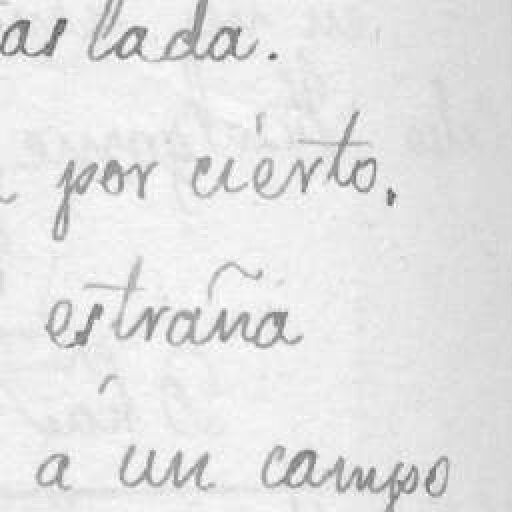 aslada.
por cierto,
estraña
á un campo